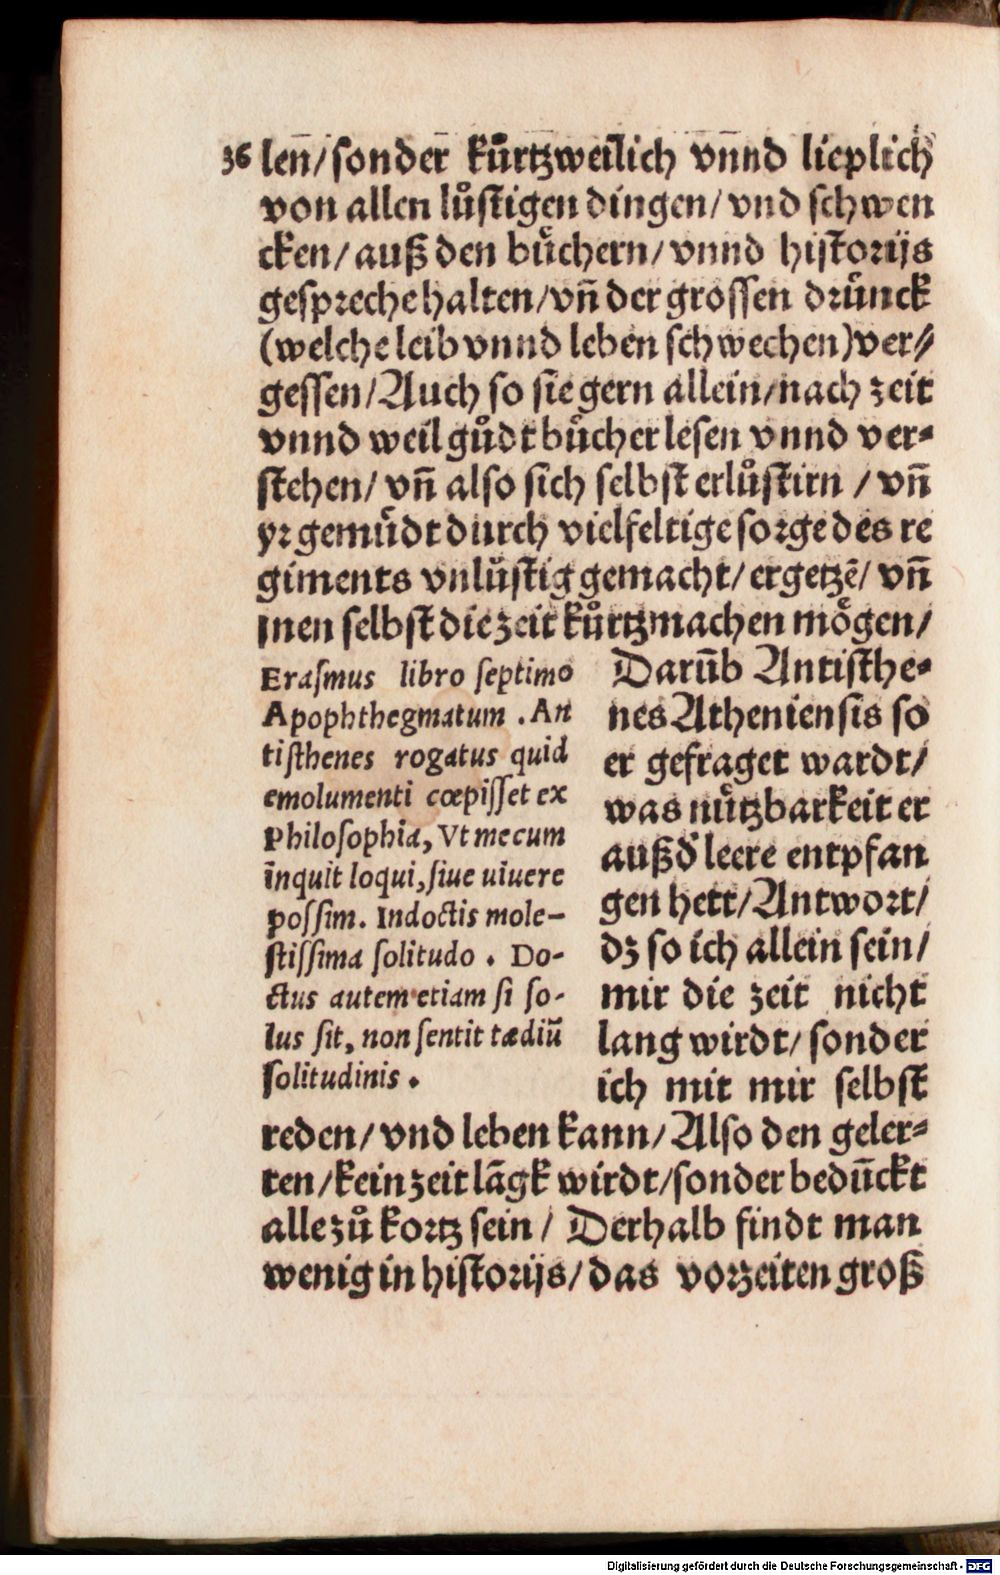 36 len̄/ sonder kuͤrtzweilich vn̄nd lieplich
von allen luͤstigen dingen/ vnd schwen
cken/ auß den buͤchern/ vnnd historijs
gespreche halten/ vn̄ der grossen druͤnck
(welche leib vnnd leben schwechen) ver⸗
gessen/ Auch so sie gern allein/ nach zeit
vnnd weil guͤdt buͤcher lesen vnnd ver⸗
stehen/ vn̄ also sich selbst erluͤstirn / vn̄
yr gemuͤdt durch vielfeltige sorge des re
giments vnluͤstig gemacht/ ergetzē/ vn̄
jnen selbst die zeit kuͤrtz machen moͤgen/
Erasmus libro septimo
Apophthegmatum . An
tisthenes rogatus quid
emolumenti cœpisset ex
Philosophia, Vt mecum
inquit loqui, siue uiuere
possim. Indoctis mole-
stissima solitudo . Do-
ctus autem etiam si so-
lus sit, non sentit tædiū
solitudinis .
Darūb Antisthe⸗
nes Atheniensis so
er gefraget wardt/
was nuͤtzbarkeit er
auß d̕ leere entpfan
gen hett/ Antwort/
dz so ich allein sein/
mir die zeit nicht
lang wirdt/ sonder
ich mit mir selbst
reden/ vnd leben kann/ Also den geler⸗
ten/ kein zeit lāgk wirdt/ sonder bedūckt
alle zuͦ kortz sein / Derhalb findt man
wenig in historijs/ das vorzeiten groß
Digitalisierung gefördert durch die Deutsche Forschungsgemeinschaft - DFG